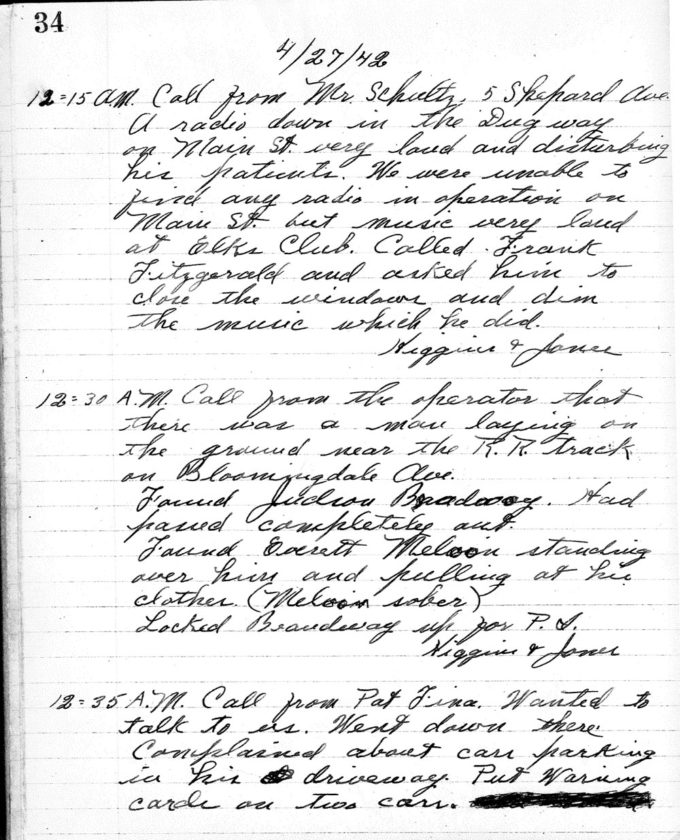 34
4/27/42
12=15 AM. Call from Mr. Schultz, 5 Shepard Ave.
A radio down in the Dugway
on Main St. very loud and disturbing
his patients. We were unable to
find any radio in operation on
Main St. but music very loud
at Elks Club. Called Frank
Fitzgerald and asked him to
close the windows and dim
the music which he did.
Higgins & Jones
12=30 A.M. Call from the operator that
there was a man laying on
the ground near the R.R. track
on Bloomingdale Ave.
Found Judson. Had
passed completely out.
Found Everett standing
over him and pulling at his
clothes. (sober)
Locked up for P.I.
Higgins & Jones
12=35 A.M. Call from Pat Fina. Wanted to
talk to us. Went down there.
Complained about cars parking
in his driveway. Put Warning
cards on two cars.